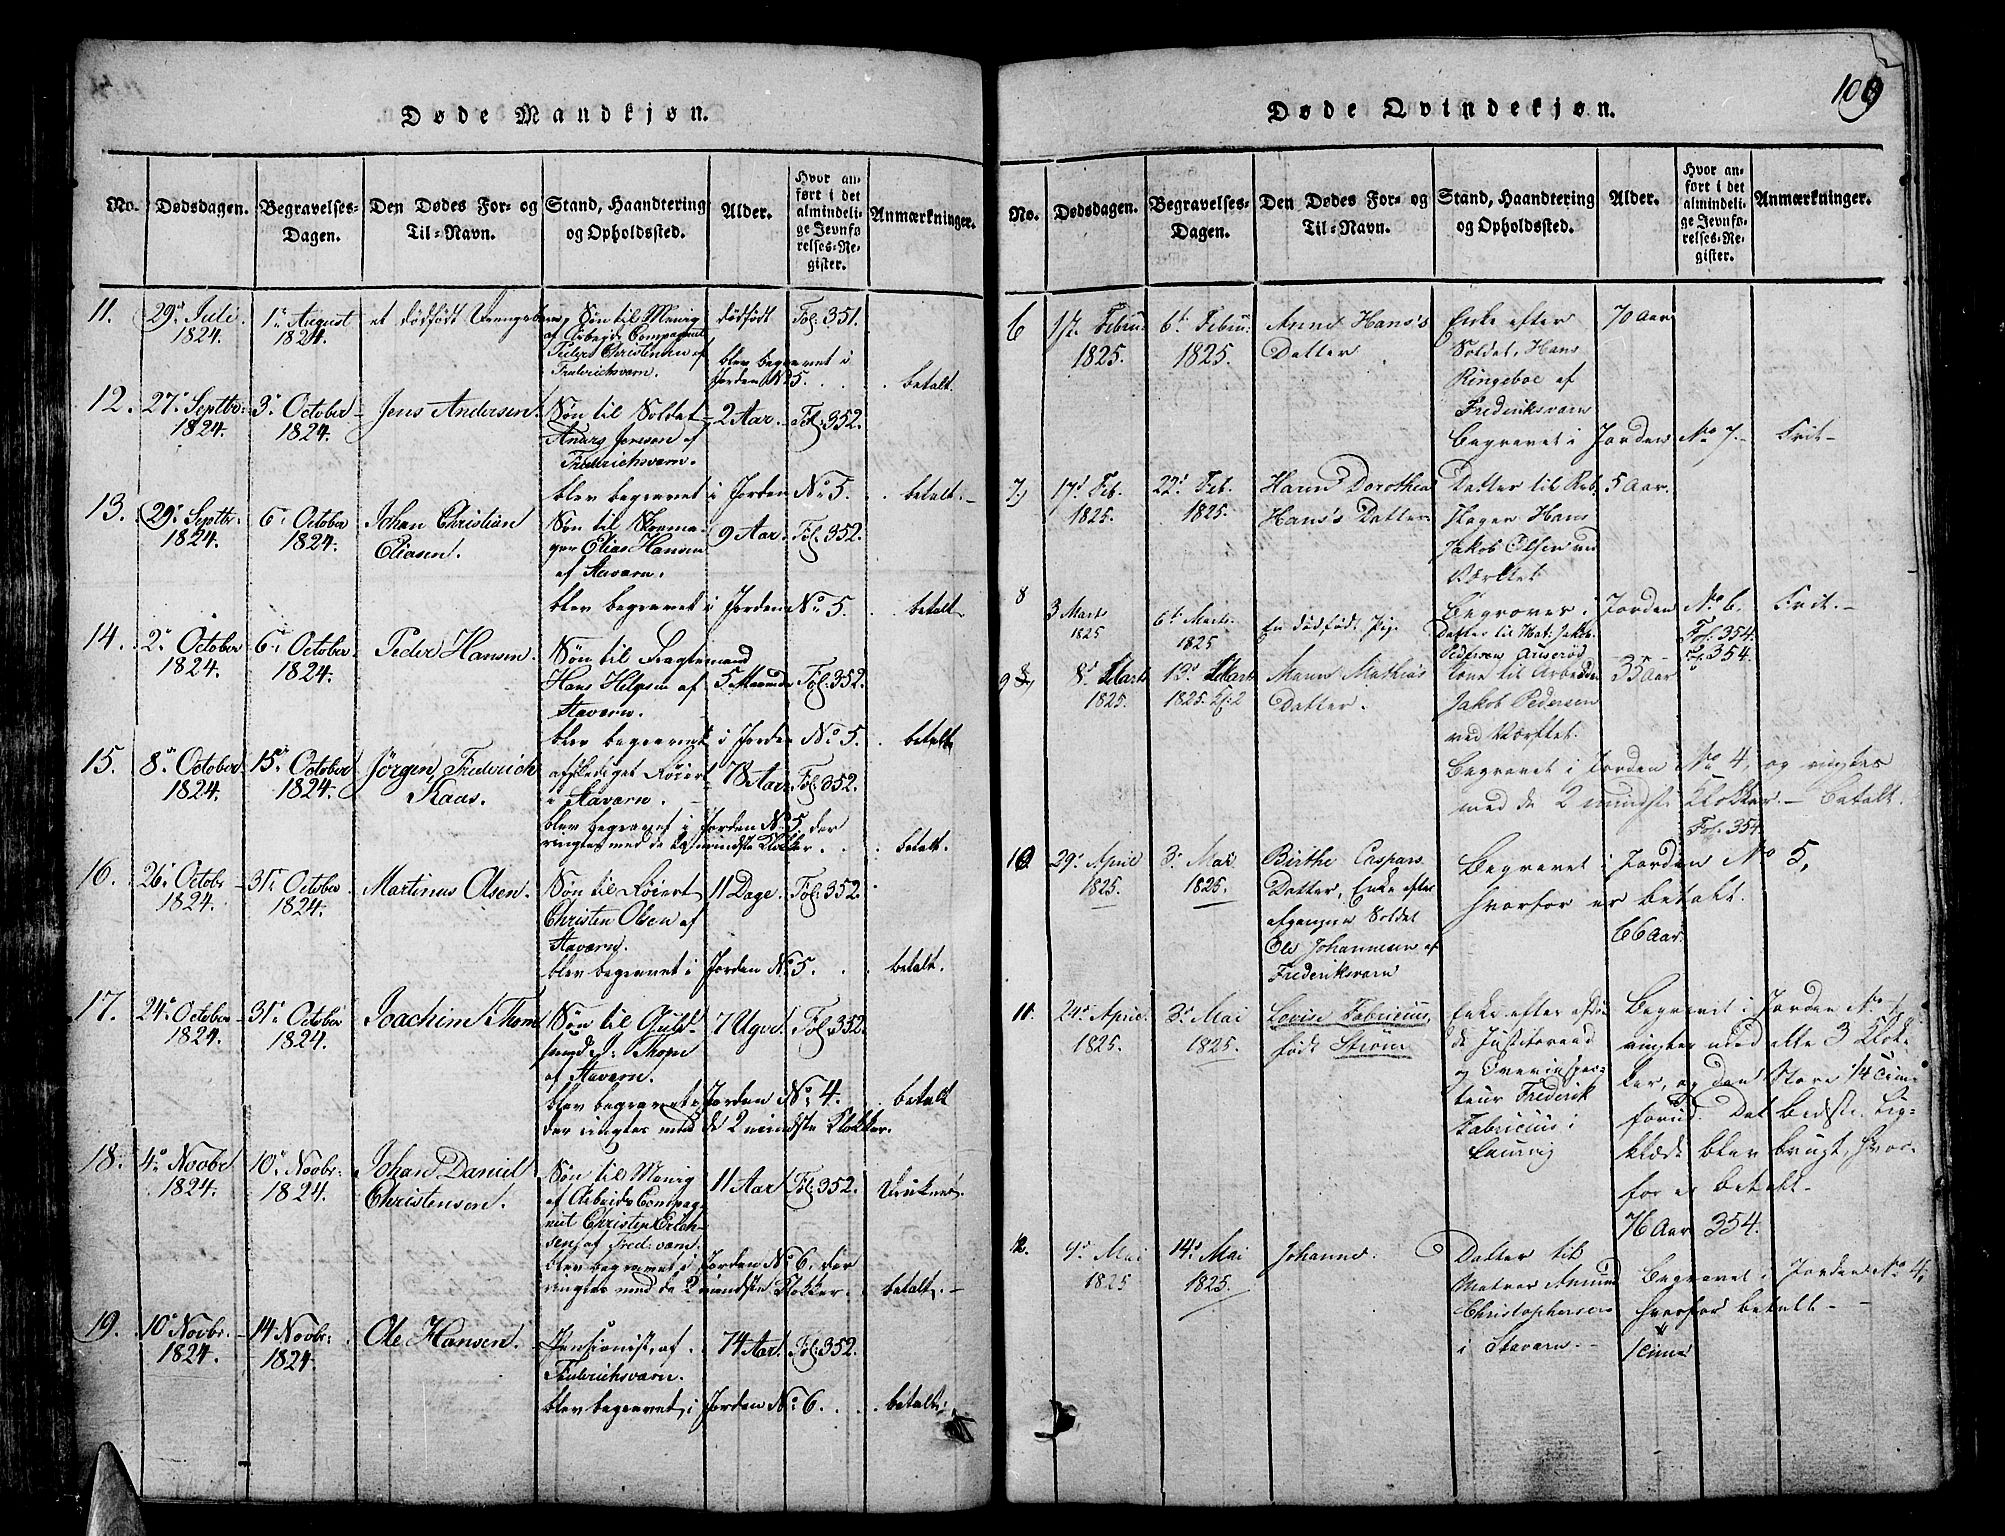 Døde Mandkjøn.
No.
Dødsdagen.
Begravelses-
Dagen.
Den Dødes For- og
Til-Navn.
Stand, Haandtering
og Opholdssted.
Alder.
Hvor an-
ført i det
almindeli-
ge Jevnfø-
relses-Re-
gister.
Anmærkninger.
11. 29 Juli 1r August et dödfödt Søn til Menig dödfödt Fol. 351.
1824. 1824. af Arbeids Compagniet
Peder Christensen af blev begravet i
Frederichsværn. Jorden No 5. betalt.
12. 27 Septbr: 3 October Jens Andersen. Søn til Soldat 2 Aar. Fol. 352.
1824. 1824. Anders Jensen af
Frederichsværn.
blev begravet i Jorden No 5. betalt.
13. 29 Septbr. 6 October Johan Christian Søn til Skoma- 9 Aar. Fol. 352.
1824. 1824. Eliasen. ger Elias Hansen
af Staværn.
blev begravet i Jorden No 5. betalt
14. 2 October 6 October Peder Hansen. Søn til Fragtemand
1824. 1824. Hans Helgsen af 5 Maaneder Fol. 352.
Stavern.
blev begravet i Jorden No 5. betalt
15. 8 October 15 October Jørgen Frederich afskediget Røiert 78 Aar Fol. 352.
1824. 1824. Kaas. i Staværn.
blev begravet i Jorden No 5, der
ringtes med de 2 mindste Klokker. betalt.
16. 26 Octobr 31 October Martinus Olsen. Søn til Røiert 11 Dage. Fol. 352.
1824. 1824. Christen Olsen af
Staværn.
blev begravet i Jorden No 5. betalt.
17. 24 October 31 October Joachim Thom Søn til Guld- 7 Uger Fol. 352.
1824. 1824. smed Thom
af Staværn.
blev begravet i Jorden No 4. betalt
der ringtes med de 2 mindste Klokker.
18. 4 Novbr 10 Novbr. Johan Daniel Søn til Menig 11 Aar Fol. 352. Druknet.
1824. 1824. Christensen. af Arbeids Compag-
niet Christen Erich-
sen af Fred:værn.
blev begravet i Jorden No 6. der
ringtes med de 2 mindste Klokker. betalt.
19. 10 Novbr. 14 Novbr: Ole Hansen. Pensionist, af 74 Aar. Fol. 352.
1824. 1824. Frederichsværn.
blev begravet i Jorden No 6. betalt.
109
Døde Qvindekjøn.
No.
Dødsdagen.
Begravelses-
Dagen.
Den Dødes For- og
Til-Navn.
Stand, Haandtering
og Opholdssted.
Alder.
Hvor an-
ført i det
almindeli-
ge Jevnfø-
relses-Re-
gister.
Anmærkninger.
6 1st Febru: 6 Febru: Anne Hans's Enke efter 70 Aar
1825. 1825. Datter Soldat, Hans
Ringeboe af
Frederiksværn
Begravet i Jorden No 7. Frit
7, 17 Feb. 22 Feb. Maren Dorothea Datter til Reb- 5 Aar.
1825. 1825. Hans's Datter slager Hans
Jakob Olsen ved
Værftet
Begraves i Jorden No 6. Frit.
8 3 Marts 6 Marts En dödfödt Pige Datter til Mat. Jakob Fol. 354.
1825 1825 Pedersen Auserød
9 8 Marts 13 Marts Maren Mathias Kone til Arbeider 35 Aar Fol. 354.
1825. 1825. Datter. Jakob Pedersen
ved Værftet.
Begravet i Jorden No 4, og ringtes
med de 2 mindste Klokker. betalt.
Fol. 354
10 29 April 3 Mai Birthe Caspars Begravet i Jorden No 5,
1825. 1825. Datter, Enke efter hvorfor er betalt.
afgangen Soldat 66 Aar.
Ole Johannesen af
Frederiksværn
11. 24 April 3 Mai Lovise Fabricius, Enke efter afdø- Begravet i Jorden No
1825. 1825. født Strøm de Justitsraad ringtes med alle 3 Klok-
og Overinspec- ker, og den Store 1/4 Time
teur Frederik forud. Det bedste Lig-
Fabricius i klæde blev brugt, hvor-
Laurvig for er betalt.
76 Aar 354.
12. 9 Mai 14 Mai Johanne. Datter til
1825 1825. Matros Amund Begravet i Jorden No 4,
Christophersen hvorfor betalt
i Staværn. 1 Time